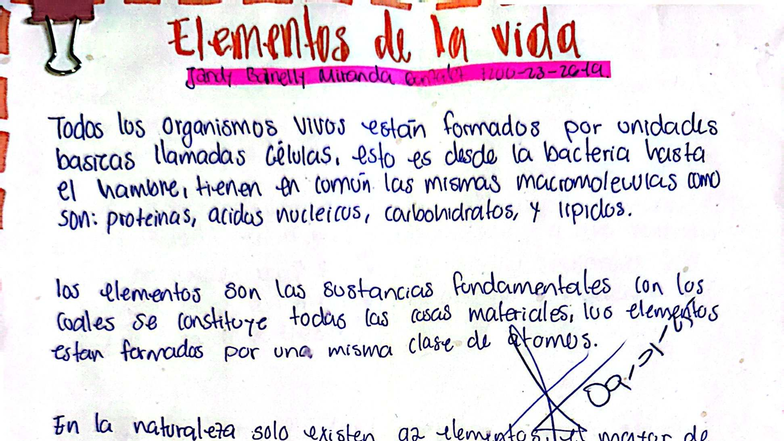 Elementos de la vida
Miranda 1200-23-2619
Todos los organismos vivos están formados por unidades
basicas llamadas células, esto es desde la bacteria hasta
el hambre, tienen en común las mismas macromoleculas como
son: proteinas, acidos nucleicos, carbohidratos, y lipidos.
los elementos son las sustancias fundamentales con los
cuales se constituye todas las cosas materiales, los elementos
estan formados por una misma clase de atomos.
En la naturaleza solo existen 92 elementos.